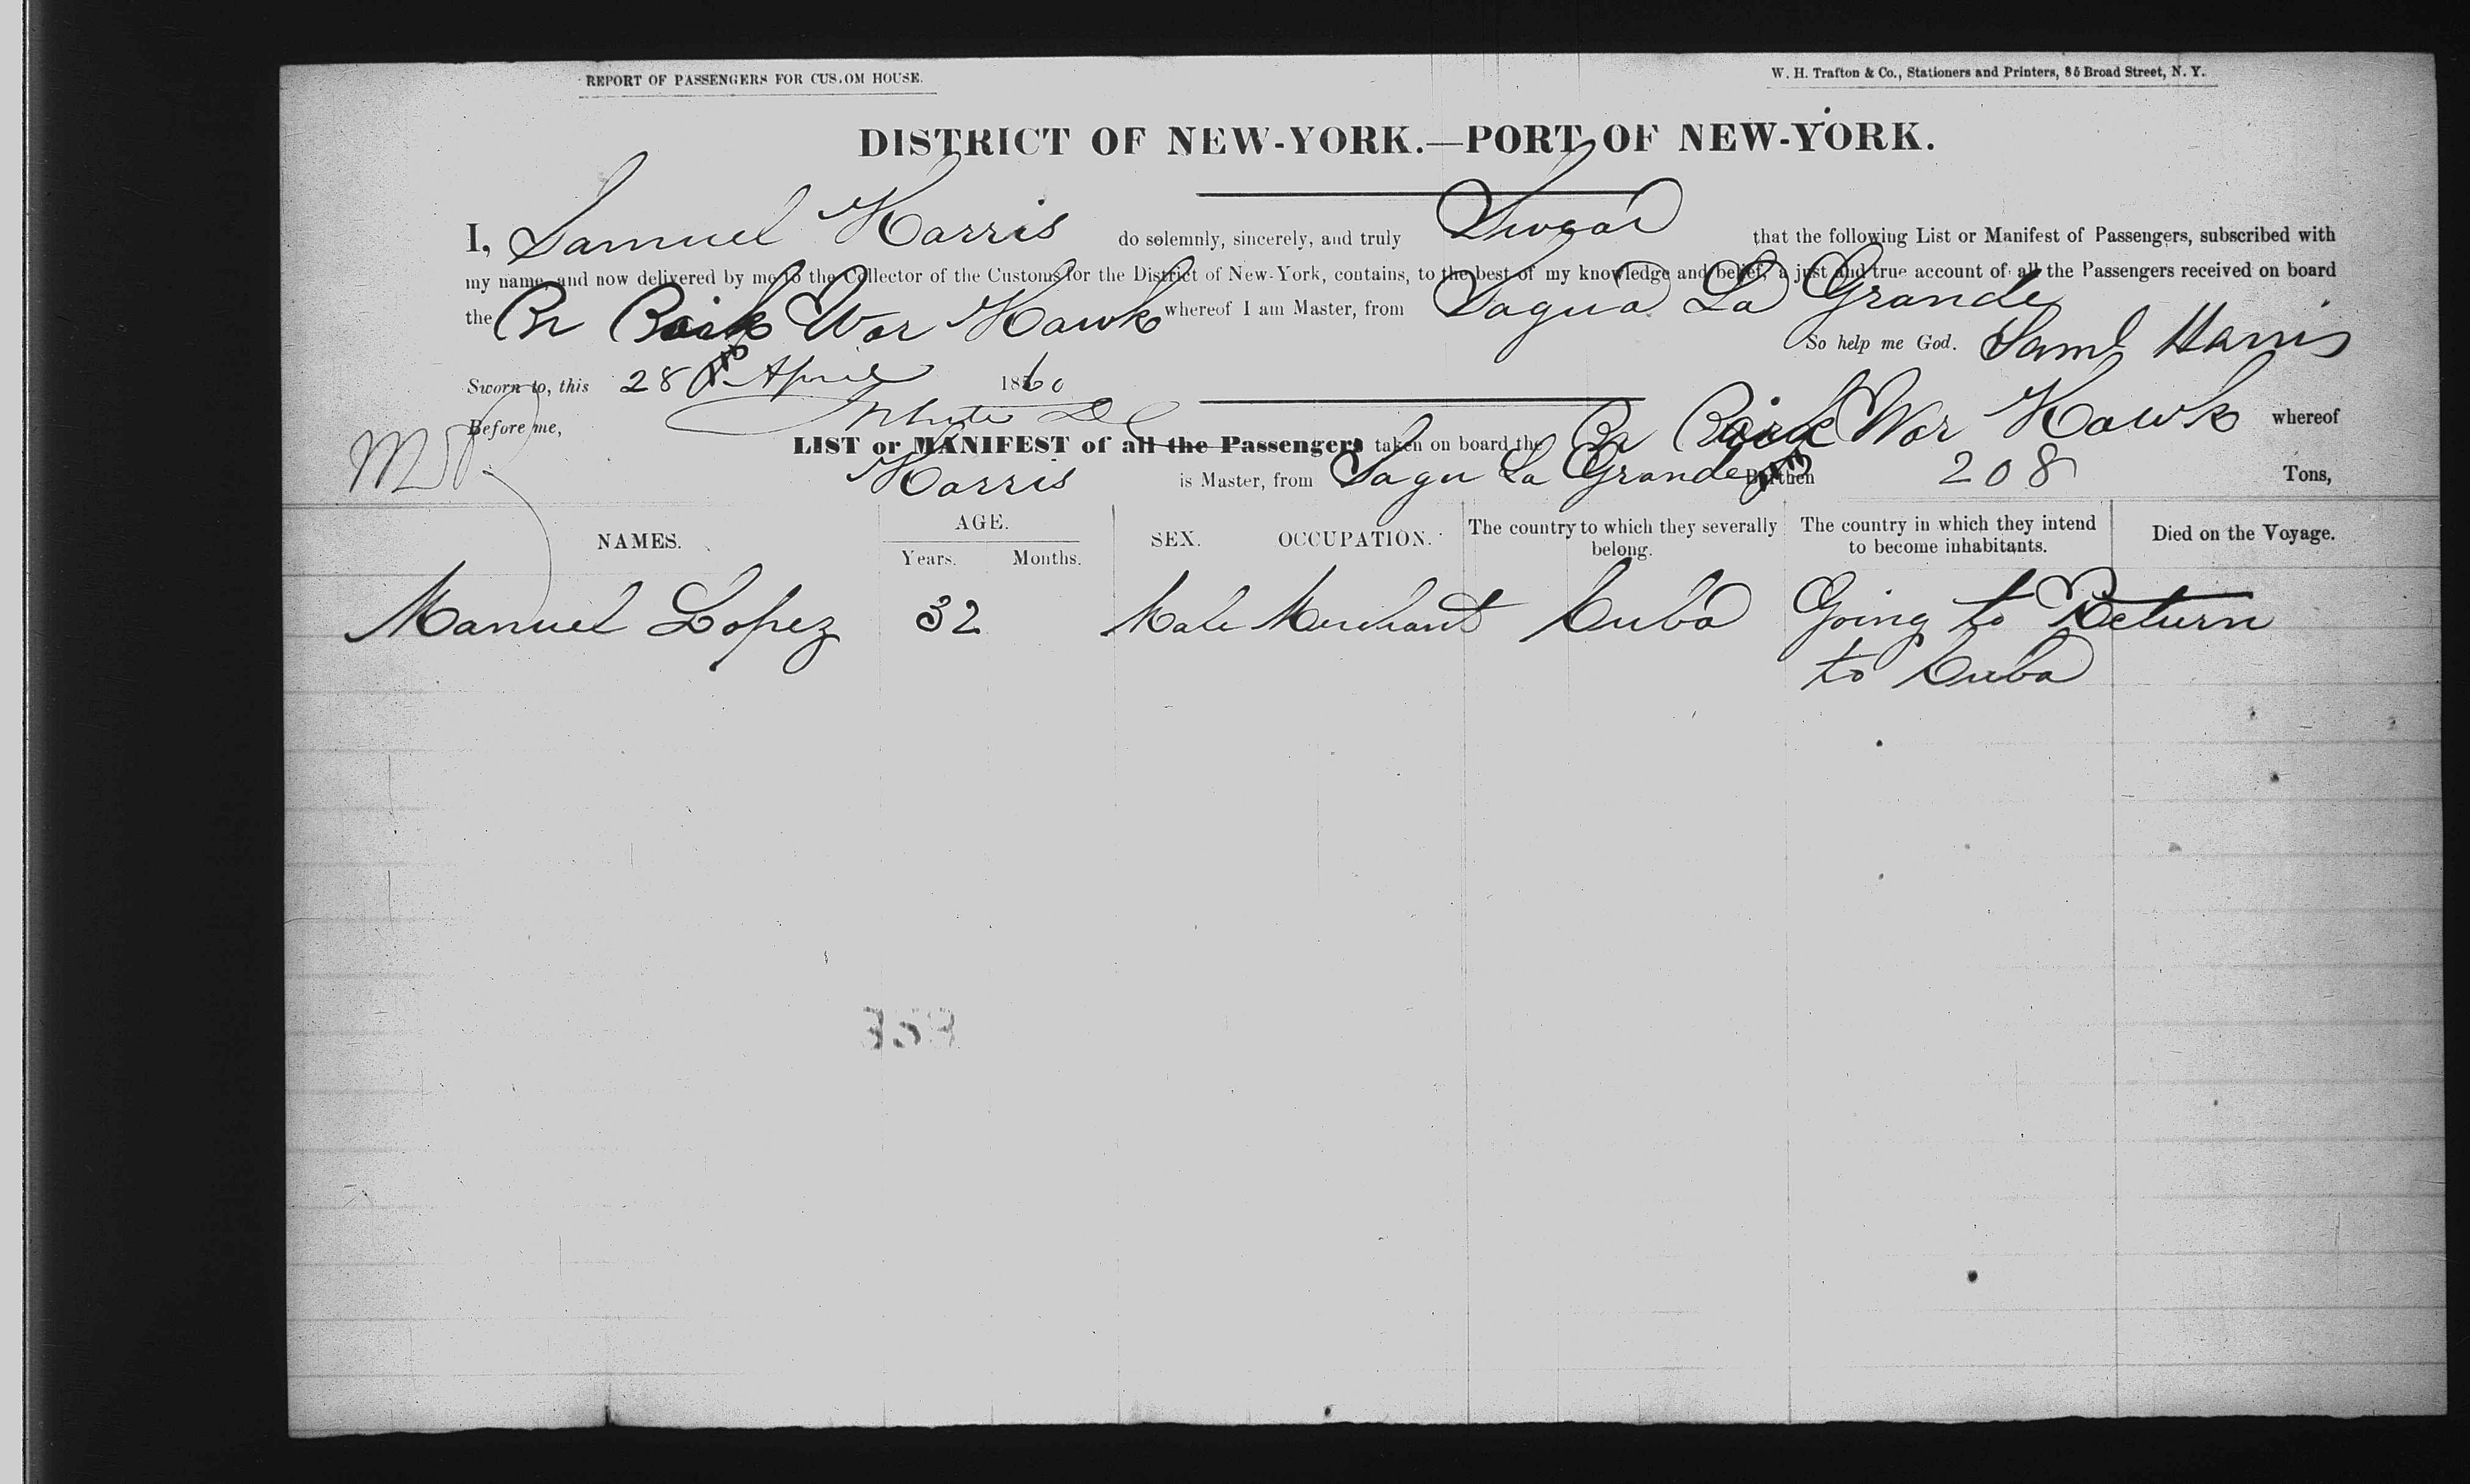 REPORT OF PASSENGERS FOR CUSTOM HOUSE.
W. H. Trafton & Co., Stationers and Printers, 85 Broad Street, N. Y.
DISTRICT OF NEW-YORK.—PORT OF NEW-YORK.
I, Samuel Harris do solemnly, sincerely, and truly Swear that the following List or Manifest of Passengers, subscribed with
my name, and now delivered by me to the Collector of the Customs for the District of New-York, contains, to the best of my knowledge and belief, a just and true account of all the Passengers received on board
the Br War Hawk whereof I am Master, from Sagua La Grande
So help me God. Saml Harris
Sworn to, this 28 April 1860
Before me,
LIST or MANIFEST of all the Passengers taken on board the Br War Hawk whereof
Harris is Master, from Sagu La Grande Burthen 208 Tons,
NAMES. AGE. Years. Months. SEX. OCCUPATION. The country to which they severally belong. The country in which they intend to become inhabitants. Died on the Voyage.
Manuel Lopez 32 Male Merchant Cuba Going to Return
to Cuba